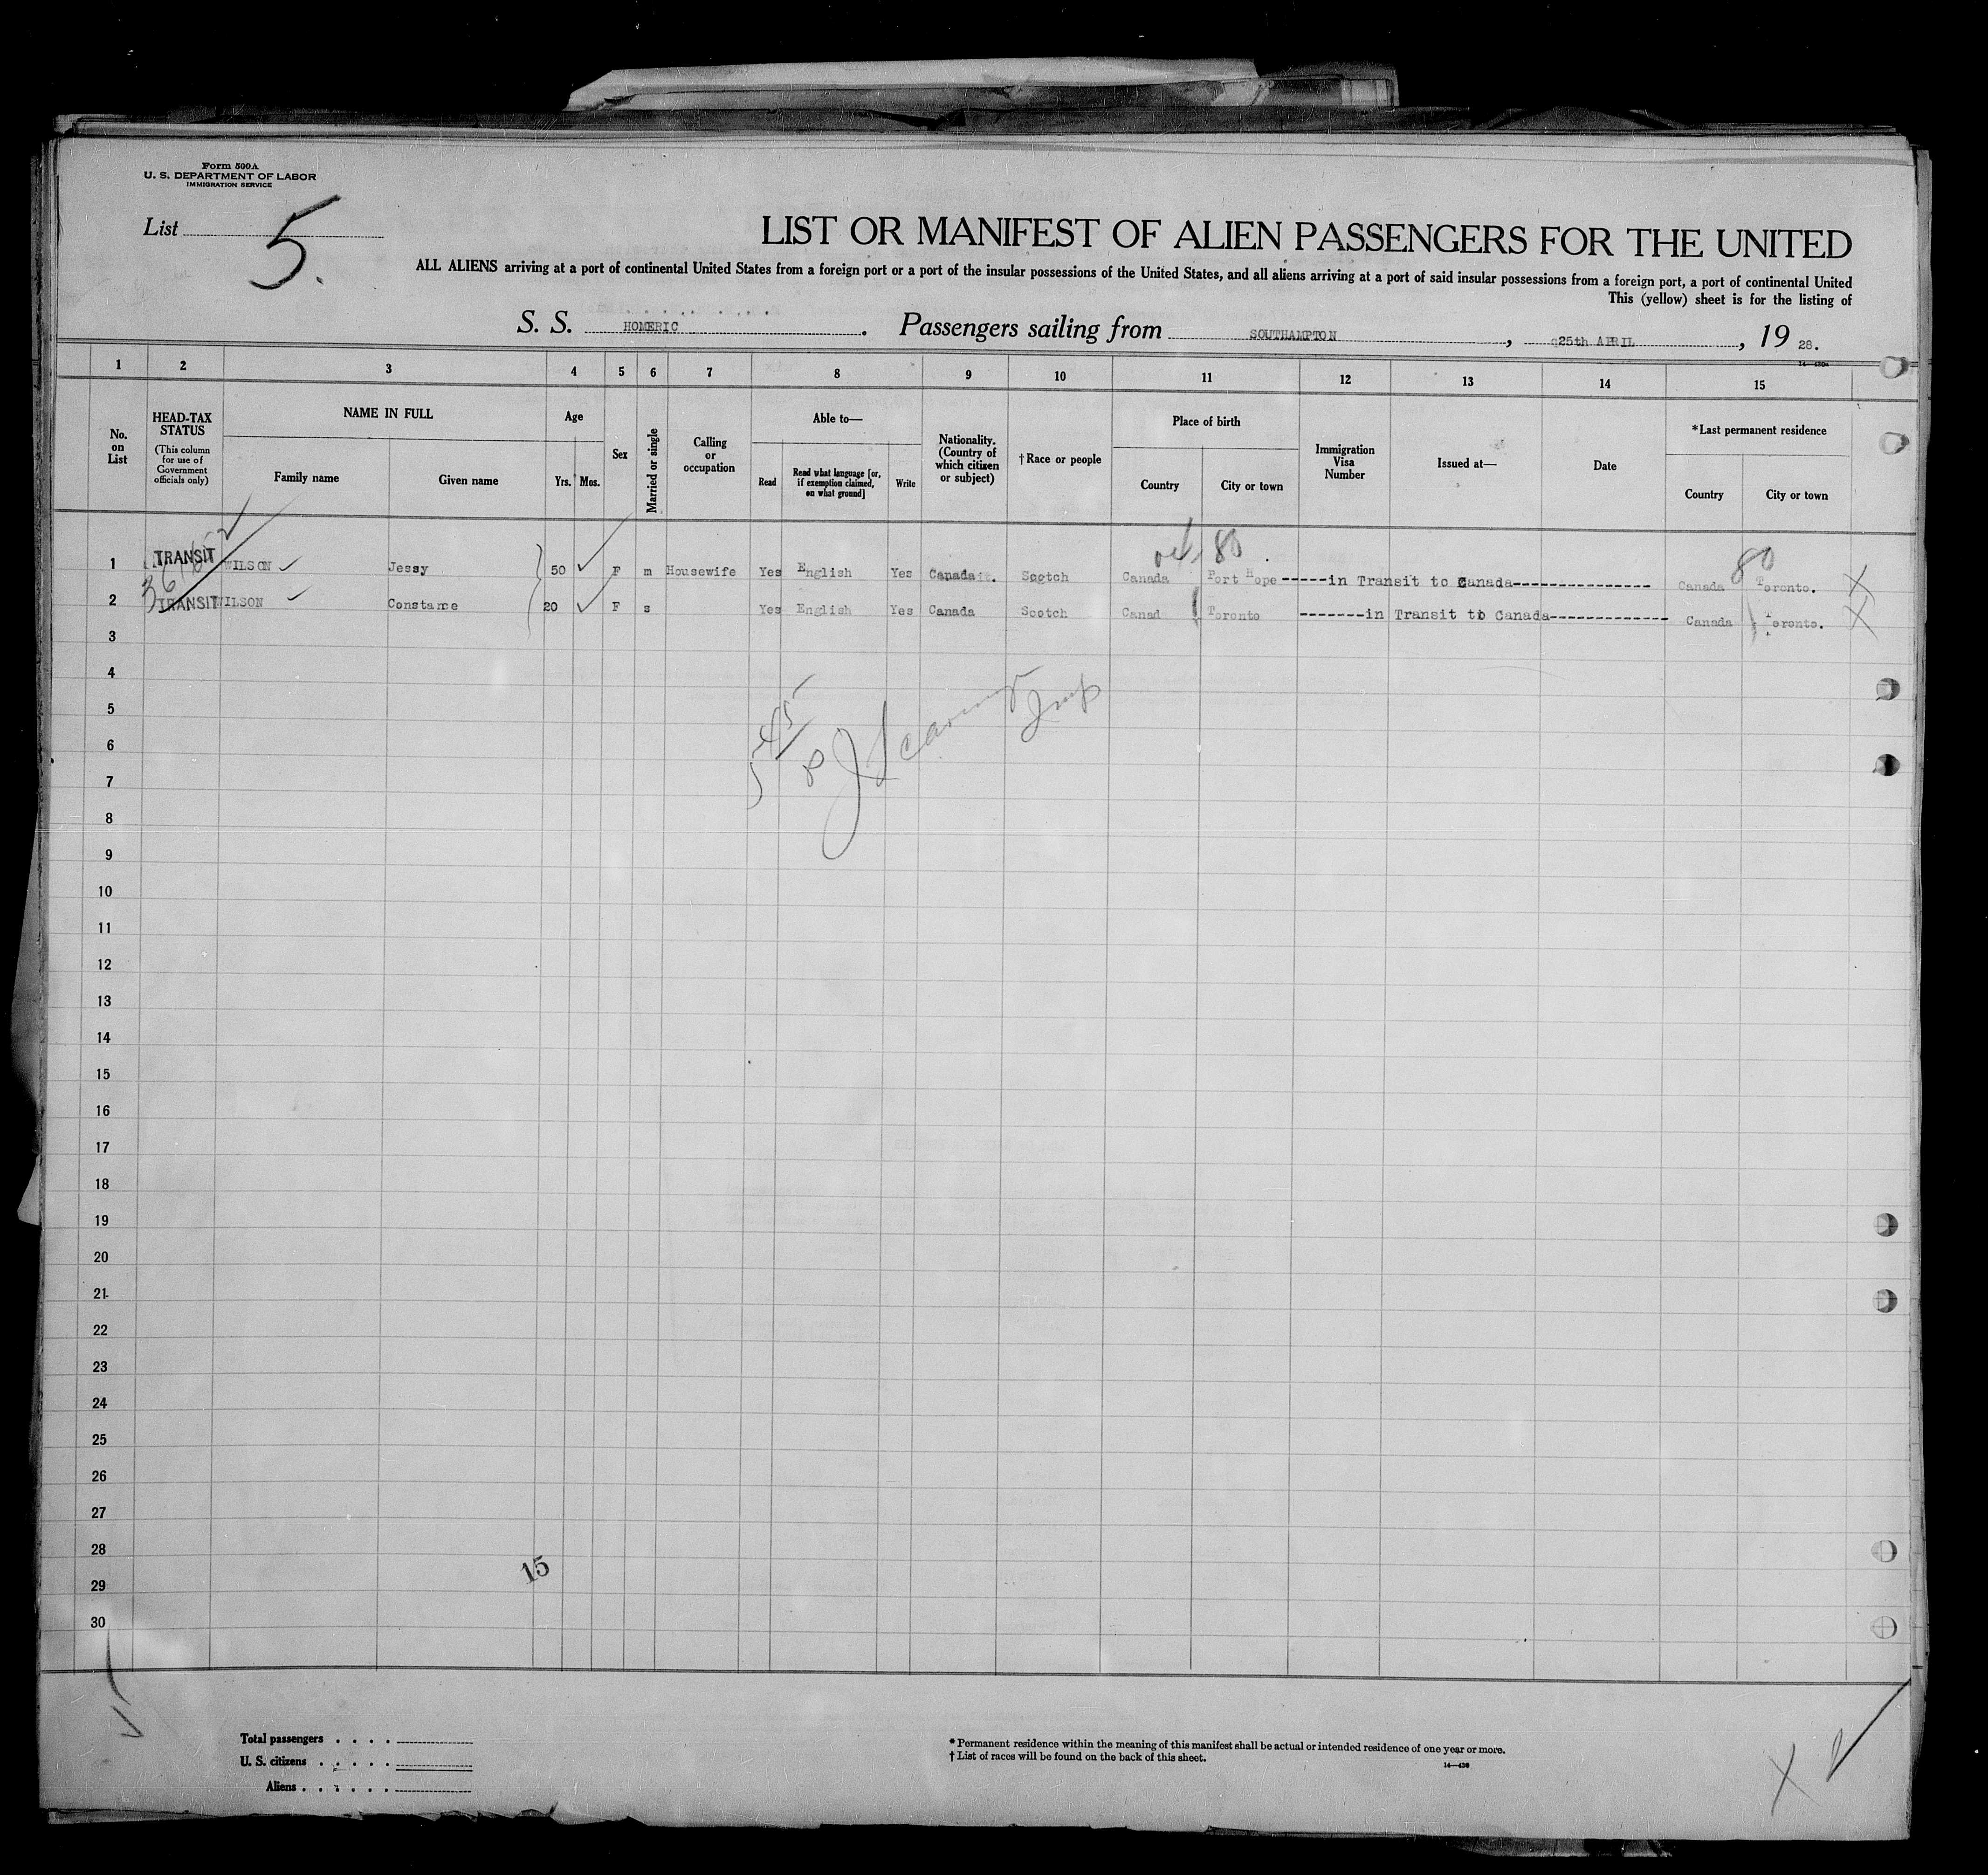 Form 500A
U. S. DEPARTMENT OF LABOR
IMMIGRATION SERVICE
List 5.
LIST OR MANIFEST OF ALIEN PASSENGERS FOR THE UNITED
ALL ALIENS arriving at a port of continental United States from a foreign port or a port of the insular possessions of the United States, and all aliens arriving at a port of said insular possessions from a foreign port, a port of continental United
This (yellow) sheet is for the listing of
S. S. HOMERIC. Passengers sailing from SOUTHAMPTON, 25th APRIL, 19 28.
1 2 3 4 5 6 7 8 9 10 11 12 13 14 15
No. on List
HEAD-TAX STATUS
(This column for use of Government officials only)
NAME IN FULL
Family name Given name
Age
Yrs. Mos.
Sex
Married or single
Calling or occupation
Able to—
Read Read what language [or, if exemption claimed, on what ground] Write
Nationality. (Country of which citizen or subject)
†Race or people
Place of birth
Country City or town
Immigration Visa Number
Issued at—
Date
*Last permanent residence
Country City or town
80 80
1 TRANSIT WILSON Jessy 50 F m Housewife Yes English Yes Canada Scotch Canada Port Hope -----in Transit to Canada--------------- Canada Toronto. X
2 TRANSIT WILSON Constance 20 F s Yes English Yes Canada Scotch Canad Toronto -------in Transit to Canada------------- Canada Toronto. X
3
4
5
6
7
8
9
10
11
12
13
14
15
16
17
18
19
20
21
22
23
24
25
26
27
28
15
29
30
Total passengers . . . .
U. S. citizens . . . . .
Aliens . . . . . .
* Permanent residence within the meaning of this manifest shall be actual or intended residence of one year or more.
† List of races will be found on the back of this sheet.
14—430
X